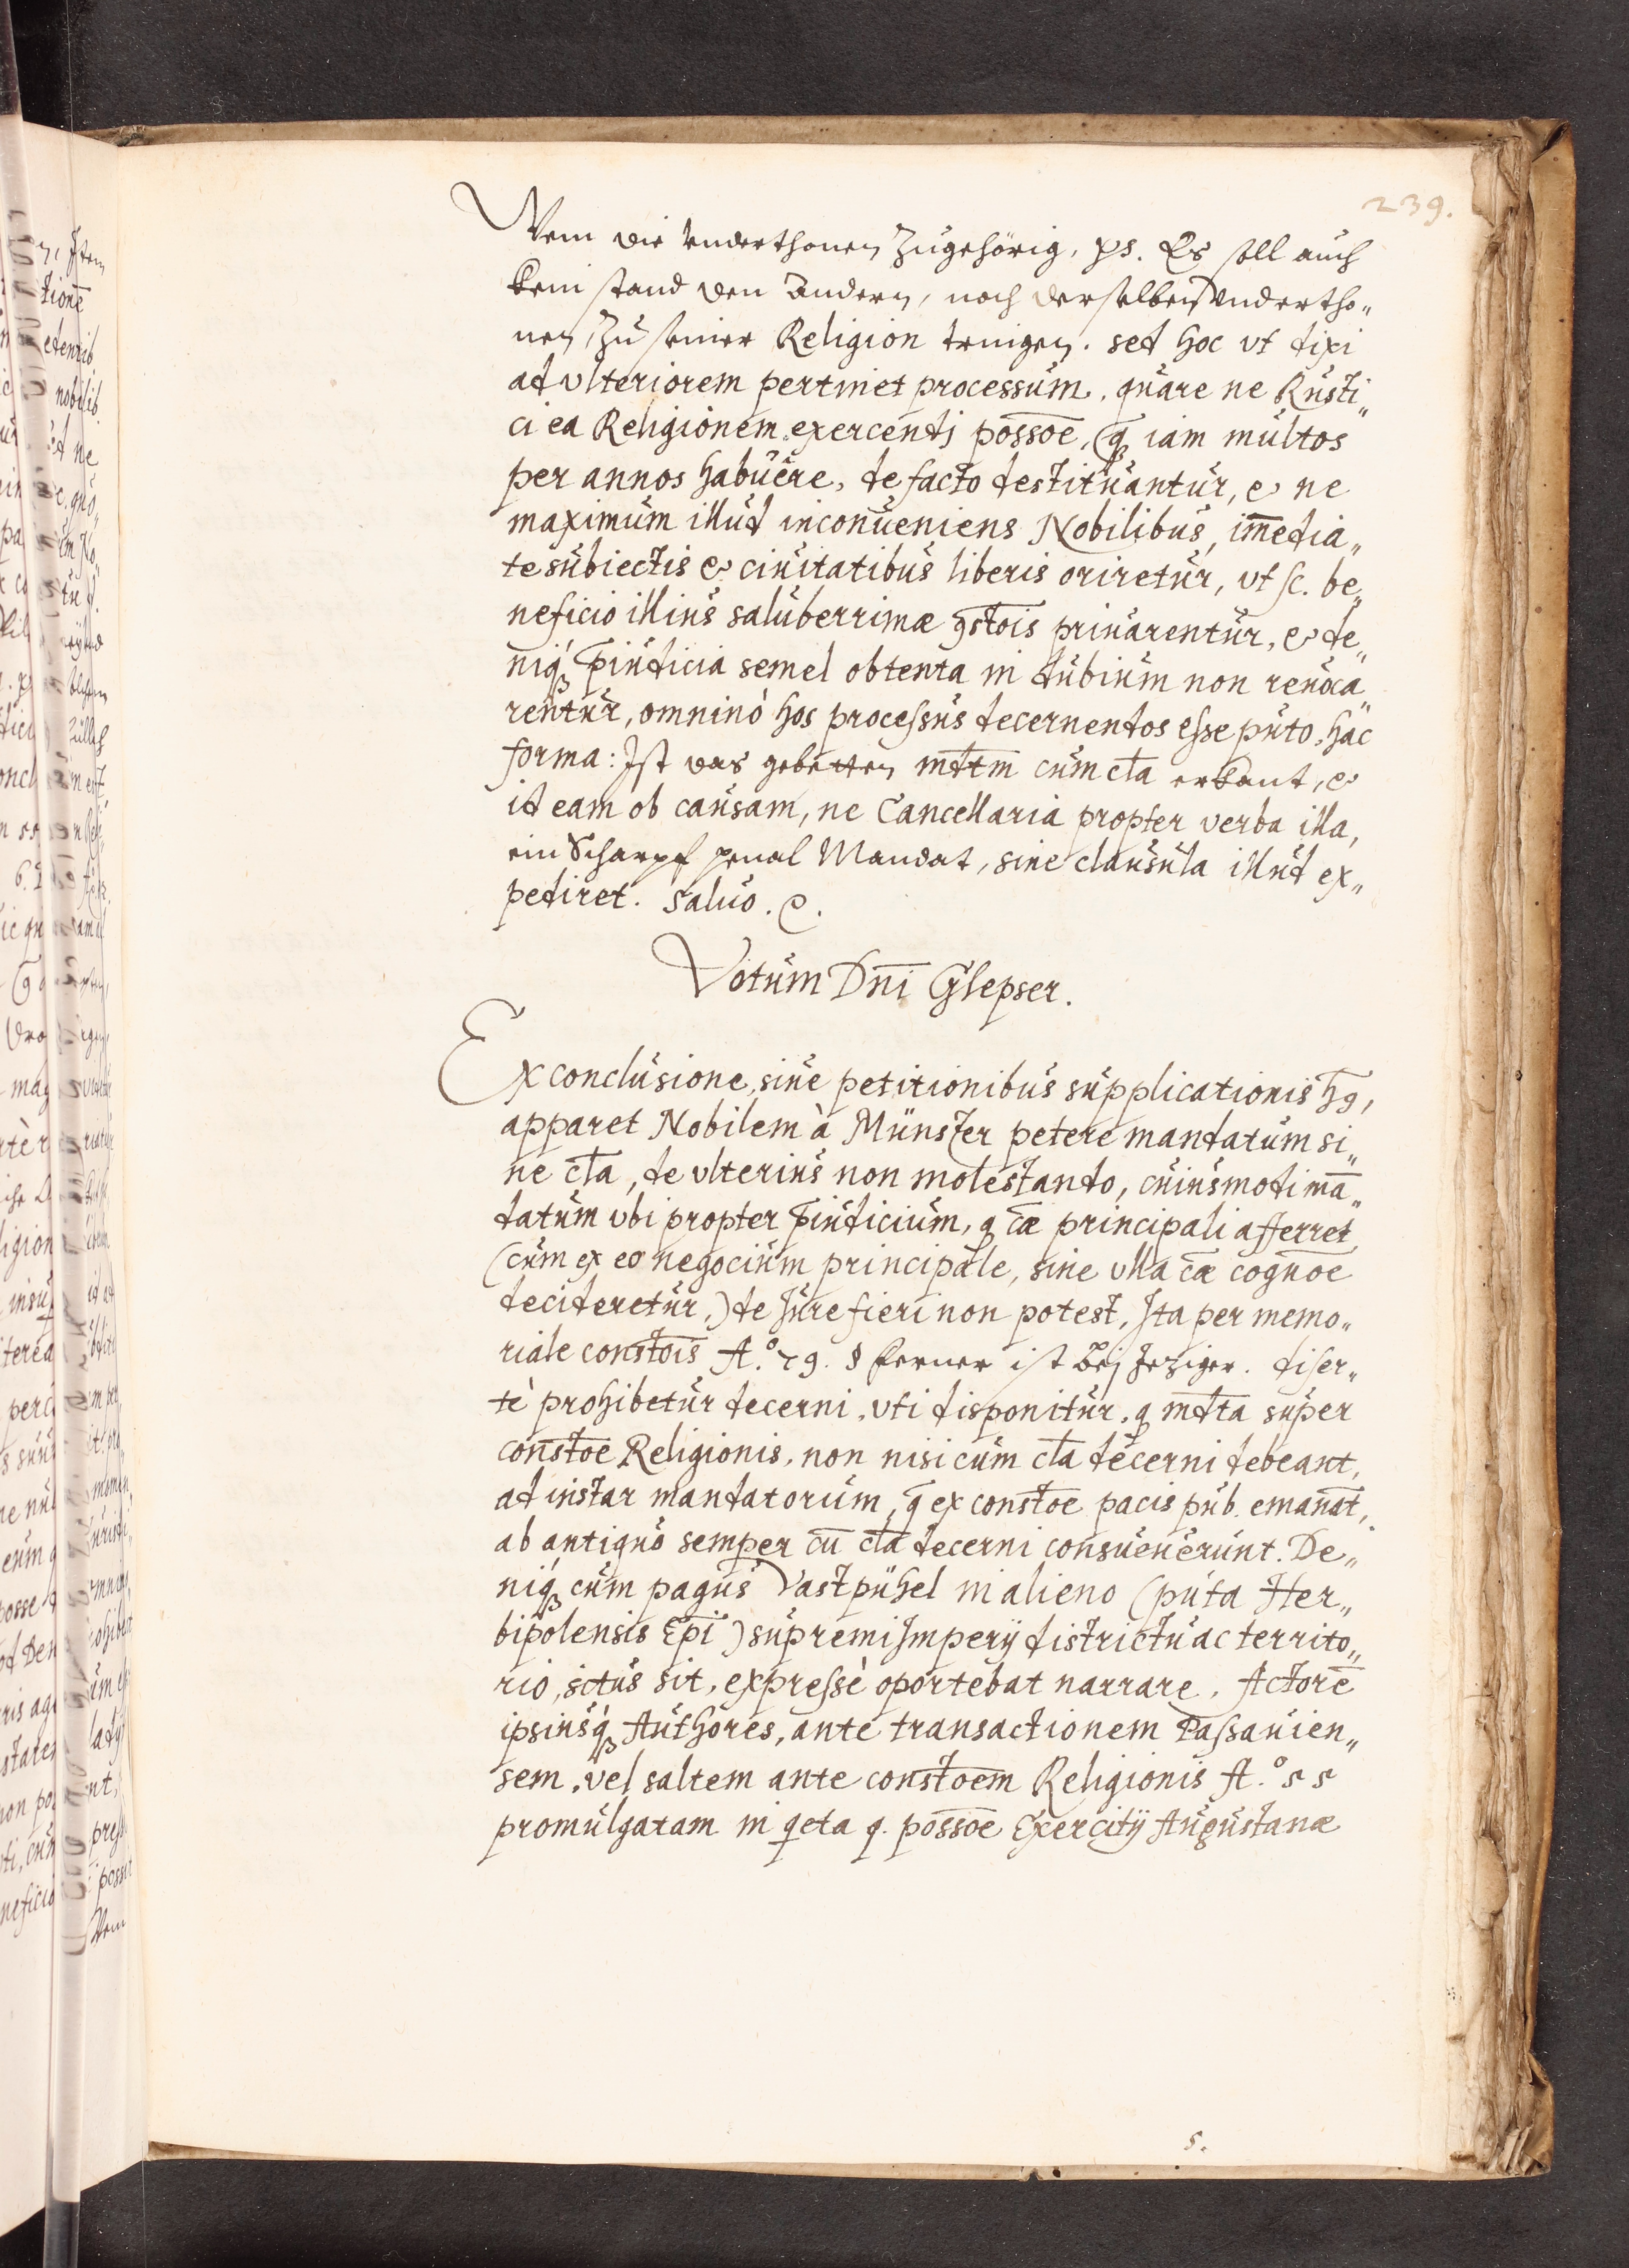 239.
Wem die Underthonen zugehörig, ps. Es soll auch
kein stand den andern, noch derselben Undertho„
nen, zu seiner Religion tringen. sed hoc vt dixi
ad vlteriorem pertinet processum, quare ne Rusti„
ci ea Religionem exercendi possōe, q̄ iam multos
per annos habuere, de facto destituantur, & ne
maximum illud inconueniens Nobilibus, im̄edia„
te subiectis & ciuitatibus liberis oriretur, vt sc. be„
neficio illius saluberrimæ ꝯstōis priuarentur, & de„
niq́ꝫ p̄iudicia semel obtenta in dubium non reuoca„
rentur, omninò hos processus decernendos esse puto, hac
forma: Ist das gebetten mdtm̄ cum cl̄a erkant, &
id eam ob causam, ne Cancellaria propter verba illa,
ein Scharpf penal Mandat, sine clausula illud ex„
pediret. Saluo. &.
Votum Dn̄i Glepser.
Ex conclusione, siue petitionibus supplicationis hꝫ,
apparet Nobilem à Münster petere mandatum si„
ne cl̄a, de vlterius non molestando, cuiusmodi mā„
datum vbi propter p̄iudicium, q cǣ principali afferret
(cum ex eo negocium principale, sine vlla cǣ cognōe
decideretur,) de Jure fieri non potest, Ita per memo„
riale constōis A.º 79. § ferner ist bej Jeziger. diser„
tè prohibetur decerni, vti disponitur, q mdt̄a super
constōe Religionis, non nisi cum cl̄a decerni debeant,
ad instar mandatorum, q̄ ex constōe pacis pub. emanāt,
ab antiquo semper cū cl̄a decerni consueuerunt. De„
niq́ꝫ cum pagus Vastpühel in alieno (puta Her„
bipolensis Ep̄i) supremi Imperij districtu ac territo„
rio, situs sit, expressè oportebat narrare, Actorē
ipsiusq́ꝫ Authores, ante transactionem Passauien„
sem, vel saltem ante constōem Religionis A.º 55
promulgatam in qeta q. possōe Exercitij Augustanæ
s.